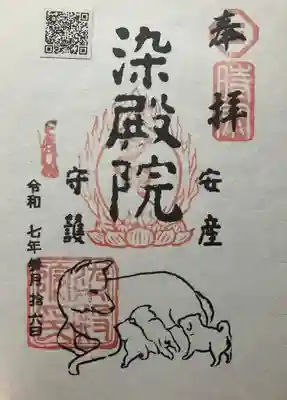 奉拝
染殿院
安産
守護
令和 七年 月拾六日